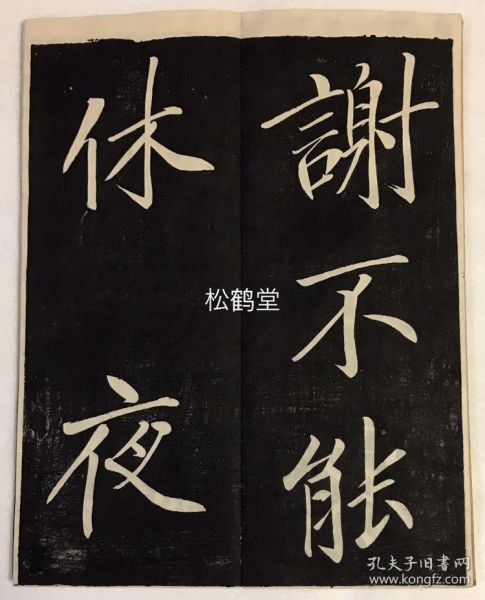 謝不能
休夜
松鹤堂
孔夫子旧書网
www.kongfz.com